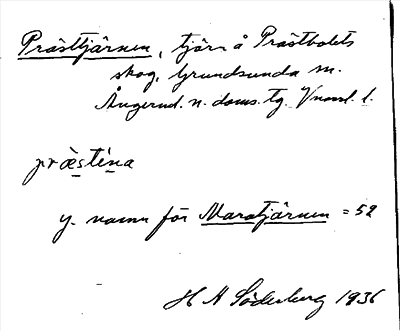 Prästtjärnen, tjärn å Prästbolets
skog, Grundsunda sn.
Ångerml. n. doms. tg. Vnorrl. l.
præ̀sti̇̀na
y. namn för Maratjärnen = 52
H A Söderberg 1936